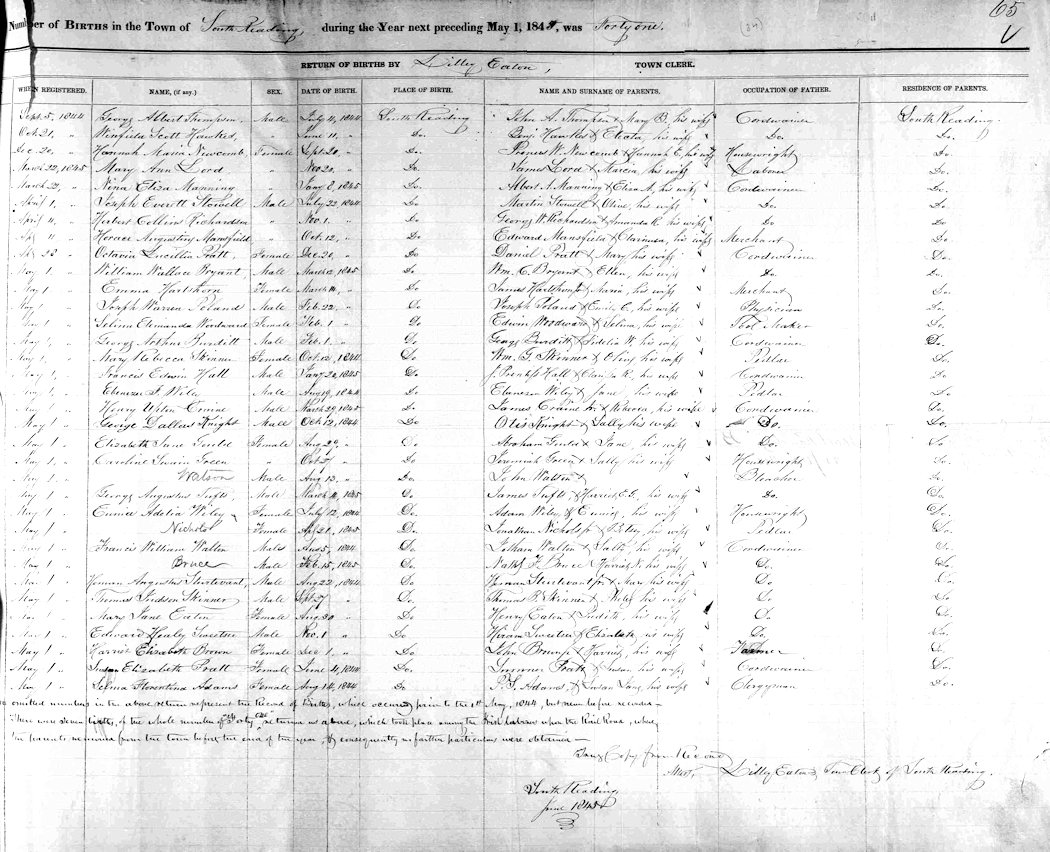 65
Number of BIRTHS in the Town of South Reading, during the Year next preceding May 1, 1845, was Forty one.
RETURN OF BIRTHS BY Lilley Eaton, TOWN CLERK.
WHEN REGISTERED. NAME, (if any.) SEX. DATE OF BIRTH. PLACE OF BIRTH. NAME AND SURNAME OF PARENTS. OCCUPATION OF FATHER. RESIDENCE OF PARENTS.
Sept. 5, 1844 George Albert Thompson, Male July 4, 1844 South Reading John A. Thompson & Mary B. his wife Cordwainer South Reading.
Oct. 21, " Winfield Scott Hawkes, " June 11, " Do. Benj. Hawkes & his wife Do. Do.
Dec. 20, " Hannah Maria Newcomb, Female Sept. 20, " Do. W. Newcomb & Hannah E. his wife Housewright Do.
March 22, 1845 Mary Ann Lord " Nov. 20, " Do. James Lord & Marcia, his wife Laborer Do.
March 22, " Nina Eliza Manning " Jany 8, 1845 Do. Albert A. Manning & Eliza A. his wife Cordwainer Do.
April 1, " Joseph Everett Stowell Male July 22, 1844 Do. Martin Stowell & Olive, his wife Do Do.
April 4, " Herbert Collins Richardson " Nov. 1, " Do. George W. Richardson & Amanda R. his wife Do Do.
Ap. 11 " Horace Augustus Mansfield " Oct. 12, " Do Edward Mansfield & Clarinda, his wife Merchant Do
" Octavia Lucillia Pratt, Female Dec. 20, " Do Daniel Pratt & Mary his wife Cordwainer Do.
May 1 " William Wallace Bryant Male March 12, 1845 Do Wm. C. Bryant & Ellen, his wife Do Do.
May 1 " Emma Hartshorn Female March 14, " Do James Hartshorn & Maria, his wife Merchant Do.
May 1 " Joseph Warren Poland Male Feb. 22, " Do Joseph Poland & C., his wife Physician Do.
May 1 " Selina Woodward Female Feb. 1 " Do Edwin Woodward & Selina, his wife Tool Maker Do.
May 1, " George Arthur Burditt Male Feb. 1. " Do. George Burditt & Fidelia W. his wife Cordwainer Do.
May 1, " Mary Rebecca Skinner Female Oct. 12, 1844 Do. Wm. Skinner & his wife Pedlar Do.
May 1, " Francis Edwin Hall Male Jany 20, 1845 Do. J. Prentiss Hall & R., his wife Cordwainer Do.
May 1, " Ebenezer Wiley Male Aug 19, 1844 Do Ebenezer Wiley & Jane, his wife Pedlar Do
May 1, " Henry Male March 29, 1845 Do. James & Rebecca, his wife Cordwainer Do.
May 1, " George Dallas Knight Male Oct. 12, 1844 Do. Otis Knight & Sally, his wife Do. Do.
May 1 " Elizabeth Jane Female Aug 29, " Do Abraham & Jane, his wife Do. Do.
May 1, " Caroline Swain Green " Oct. 5 " Do Jeremiah Green & Sally his wife Housewright Do.
May 1 " Male Aug 13, " Do. John Walton & Do.
May 1 " George Augustus Tufts, Male March 4, 1845 Do. James Tufts & Harriet E. T., his wife Do. Do
May 1 " Eunice Adelia Wiley Female July 12, 1844 Do. Adam Wiley & Eunice, his wife Housewright Do.
May 1 " Nichols Female Ap. 21, 1845 Do. Jonathan Nichols jr. & Betsey, his wife Pedlar Do.
May 1 " Francis William Walton Male Aug 5, 1844 Do. Walton & Sally, his wife Cordwainer Do.
May 1 " Bruce Male Feb. 15, 1845 Do. F. Bruce & Harriet N. his wife Do. Do.
May 1 " Augustus Sturtevant, Male Aug 22, 1844 Do. Sturtevant jr. & Mary his wife Do Do.
May 1 " Thomas Judson Skinner Male Sept. 7 " Do Thomas Skinner & his wife Do Do.
May 1 " Mary Jane Eaton Female Aug 30 " Do Henry Eaton & Judith, his wife Do Do.
May 1 " Edward Healey Sweetser Male Nov. 1 " Do Hiram Sweetser & Elizabeth, his wife Do. Do.
May 1 " Harriet Elizabeth Brown Female Dec 1 " Do John Brown & Harriet, his wife Farmer Do.
May 1 " Susan Elizabeth Pratt Female June 4, 1844 Do. Pratt & Susan his wife Cordwainer Do.
May 1 " Selma Florentina Adams Female Aug 14, 1844 Do P. S. Adams, & Susan Jane, his wife Clergyman Do.
omitted numbers in the above return represent the Record of Births, which occurred prior to the 1st May, 1844, but never before recorded —
There were seven births, of the whole number of forty one returned as above, which took place among the Irish laborers upon the Rail Road, whose
parents removed from the town before the end of the year, & consequently no farther particulars were obtained —
Copy from Record
Attest, Lilley Eaton, Town Clerk of South Reading.
South Reading,
June 1845